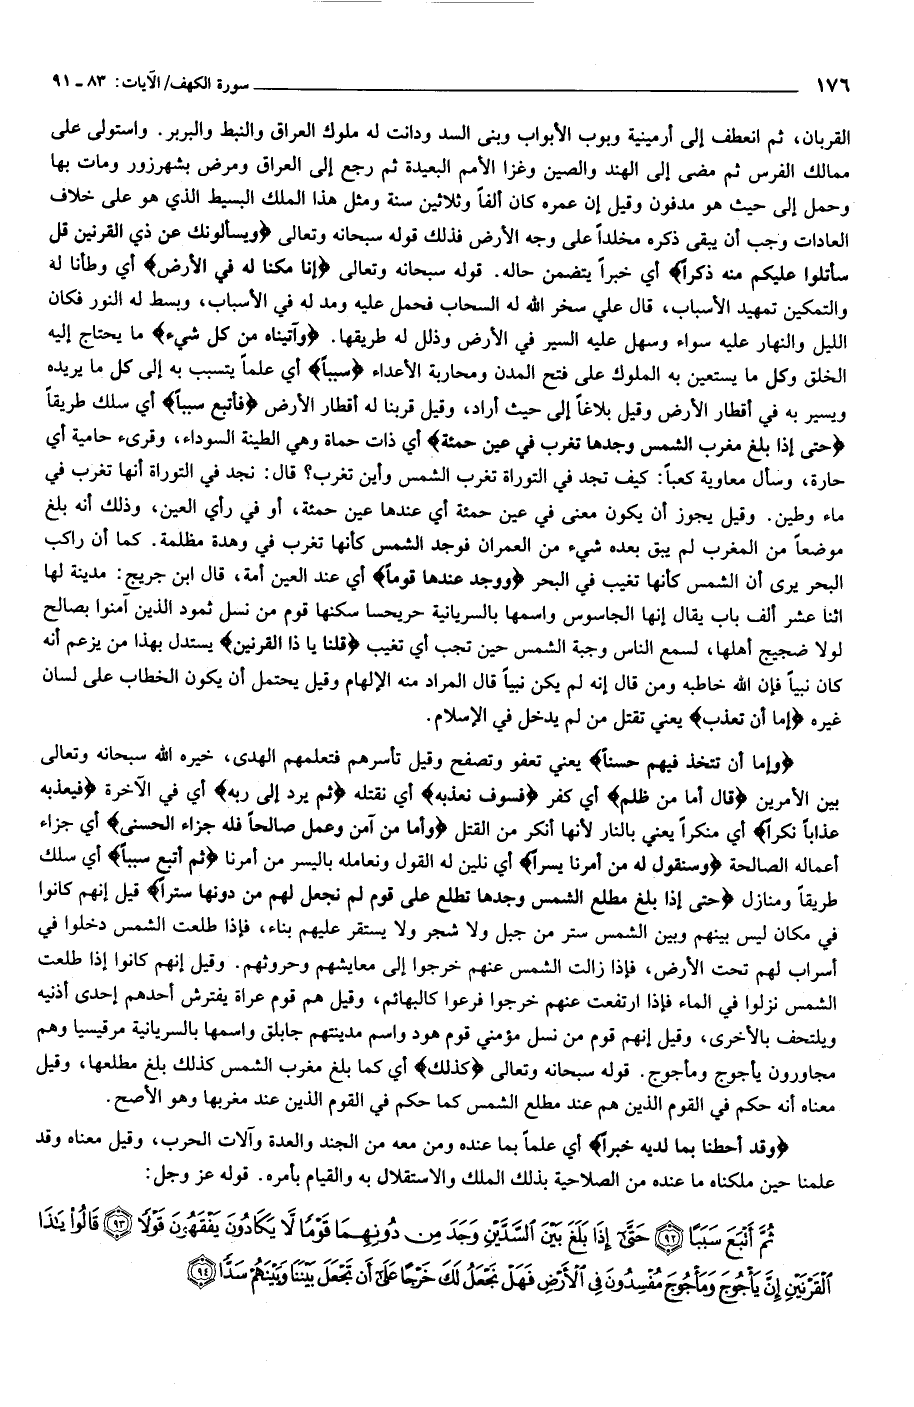 ١٧٦ سورة الكهف/ الآيات: ٨٣ ـ ٩١
القربان، ثم انعطف إلى أرمينية وبوب الأبواب وبنى السد ودانت له ملوك العراق والنبط والبربر. واستولى على
ممالك الفرس ثم مضى إلى الهند والصين وغزا الأمم البعيدة ثم رجع إلى العراق ومرض بشهرزور ومات بها
وحمل إلى حيث هو مدفون وقيل إن عمره كان ألفاً وثلاثين سنة ومثل هذا الملك البسيط الذي هو على خلاف
العادات وجب أن يبقى ذكره مخلداً على وجه الأرض فذلك قوله سبحانه وتعالى ﴿ويسألونك عن ذي القرنين قل
سأتلوا عليكم منه ذكراً﴾ أي خبراً يتضمن حاله. قوله سبحانه وتعالى ﴿إنا مكنا له في الأرض﴾ أي وطأنا له
والتمكين تمهيد الأسباب، قال علي سخر الله له السحاب فحمل عليه ومد له في الأسباب، وبسط له النور فكان
الليل والنهار عليه سواء وسهل عليه السير في الأرض وذلل له طريقها. ﴿وآتيناه من كل شيء﴾ ما يحتاج إليه
الخلق وكل ما يستعين به الملوك على فتح المدن ومحاربة الأعداء ﴿سبباً﴾ أي علماً يتسبب به إلى كل ما يريده
ويسير به في أقطار الأرض وقيل بلاغاً إلى حيث أراد، وقيل قربنا له أقطار الأرض ﴿فأتبع سبباً﴾ أي سلك طريقاً
﴿حتى إذا بلغ مغرب الشمس وجدها تغرب في عين حمئة﴾ أي ذات حماة وهي الطينة السوداء، وقرىء حامية أي
حارة، وسأل معاوية كعباً: كيف تجد في التوراة تغرب الشمس وأين تغرب؟ قال: نجد في التوراة أنها تغرب في
ماء وطين. وقيل يجوز أن يكون معنى في عين حمئة أي عندها عين حمئة، أو في رأي العين، وذلك أنه بلغ
موضعاً من المغرب لم يبق بعده شيء من العمران فوجد الشمس كأنها تغرب في وهدة مظلمة. كما أن راكب
البحر يرى أن الشمس كأنها تغيب في البحر ﴿ووجد عندها قوماً﴾ أي عند العين أمة، قال ابن جريج: مدينة لها
اثنا عشر ألف باب يقال إنها الجاسوس واسمها بالسريانية حريحسا سكنها قوم من نسل ثمود الذين آمنوا بصالح
لولا ضجيج أهلها، لسمع الناس وجبة الشمس حين تجب أي تغيب ﴿قلنا يا ذا القرنين﴾ يستدل بهذا من يزعم أنه
كان نبياً فإن الله خاطبه ومن قال إنه لم يكن نبياً قال المراد منه الإلهام وقيل يحتمل أن يكون الخطاب على لسان
غيره ﴿إما أن تعذب﴾ يعني تقتل من لم يدخل في الإسلام.
﴿وإما أن تتخذ فيهم حسناً﴾ يعني تعفو وتصفح وقيل تأسرهم فتعلمهم الهدى، خيره الله سبحانه وتعالى
بين الأمرين ﴿قال أما من ظلم﴾ أي كفر ﴿فسوف نعذبه﴾ أي نقتله ﴿ثم يرد إلى ربه﴾ أي في الآخرة ﴿فيعذبه
عذاباً نكراً﴾ أي منكراً يعني بالنار لأنها أنكر من القتل ﴿وأما من آمن وعمل صالحاً فله جزاء الحسنى﴾ أي جزاء
أعماله الصالحة ﴿وسنقول له من أمرنا يسراً﴾ أي نلين له القول ونعامله باليسر من أمرنا ﴿ثم أتبع سبباً﴾ أي سلك
طريقاً ومنازل ﴿حتى إذا بلغ مطلع الشمس وجدها تطلع على قوم لم نجعل لهم من دونها ستراً﴾ قيل إنهم كانوا
في مكان ليس بينهم وبين الشمس ستر من جبل ولا شجر ولا يستقر عليهم بناء، فإذا طلعت الشمس دخلوا في
أسراب لهم تحت الأرض، فإذا زالت الشمس عنهم خرجوا إلى معايشهم وحروثهم. وقيل إنهم كانوا إذا طلعت
الشمس نزلوا في الماء فإذا ارتفعت عنهم خرجوا فرعوا كالبهائم، وقيل هم قوم عراة يفترش أحدهم إحدى أذنيه
ويلتحف بالأخرى، وقيل إنهم قوم من نسل مؤمني قوم هود واسم مدينتهم جابلق واسمها بالسريانية مرقيسيا وهم
مجاورون يأجوج ومأجوج. قوله سبحانه وتعالى ﴿كذلك﴾ أي كما بلغ مغرب الشمس كذلك بلغ مطلعها، وقيل
معناه أنه حكم في القوم الذين هم عند مطلع الشمس كما حكم في القوم الذين عند مغربها وهو الأصح.
﴿وقد أحطنا بما لديه خبراً﴾ أي علماً بما عنده ومن معه من الجند والعدة وآلات الحرب، وقيل معناه وقد
علمنا حين ملكناه ما عنده من الصلاحية بذلك الملك والاستقلال به والقيام بأمره. قوله عز وجل:
ثُمَّ أَتْبَعَ سَبَبًا ﴿٩٢﴾ حَتَّىٰٓ إِذَا بَلَغَ بَيْنَ ٱلسَّدَّيْنِ وَجَدَ مِن دُونِهِمَا قَوْمًا لَّا يَكَادُونَ يَفْقَهُونَ قَوْلًا ﴿٩٣﴾ قَالُوا۟ يَٰذَا
ٱلْقَرْنَيْنِ إِنَّ يَأْجُوجَ وَمَأْجُوجَ مُفْسِدُونَ فِى ٱلْأَرْضِ فَهَلْ نَجْعَلُ لَكَ خَرْجًا عَلَىٰٓ أَن تَجْعَلَ بَيْنَنَا وَبَيْنَهُمْ سَدًّا ﴿٩٤﴾